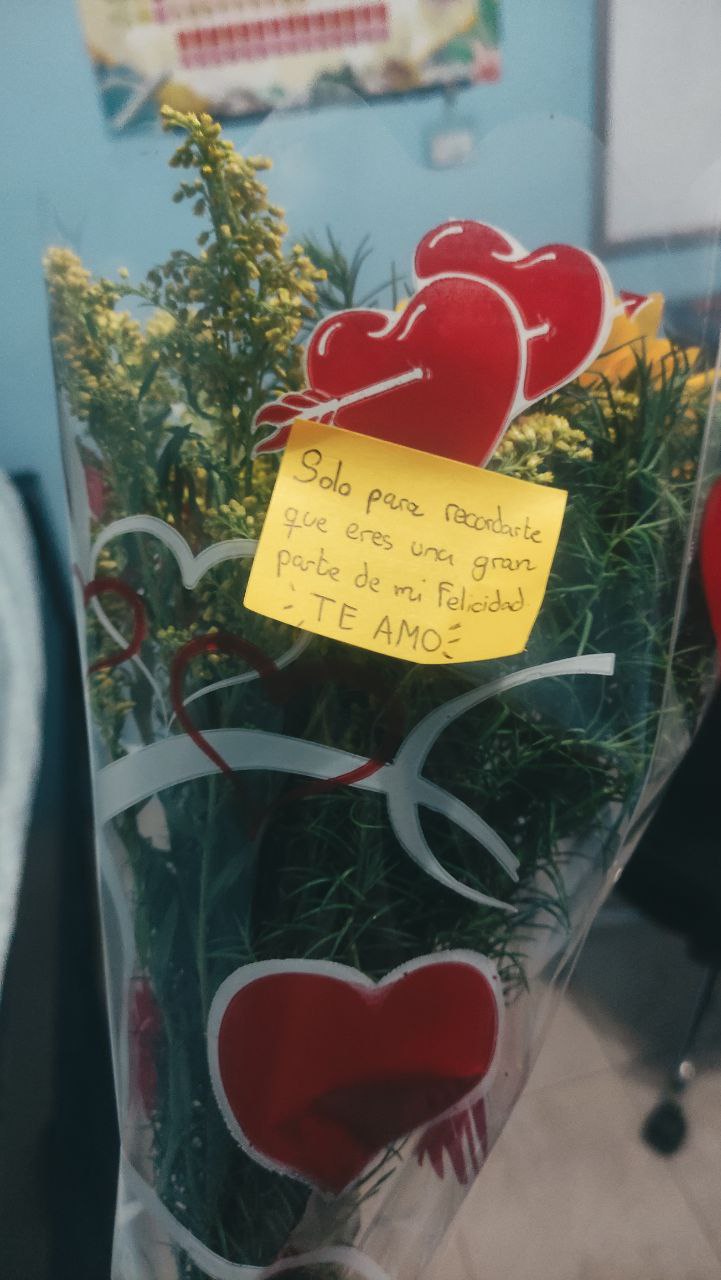 Solo para recordarte
que eres una gran
parte de mi Felicidad.
TE AMO